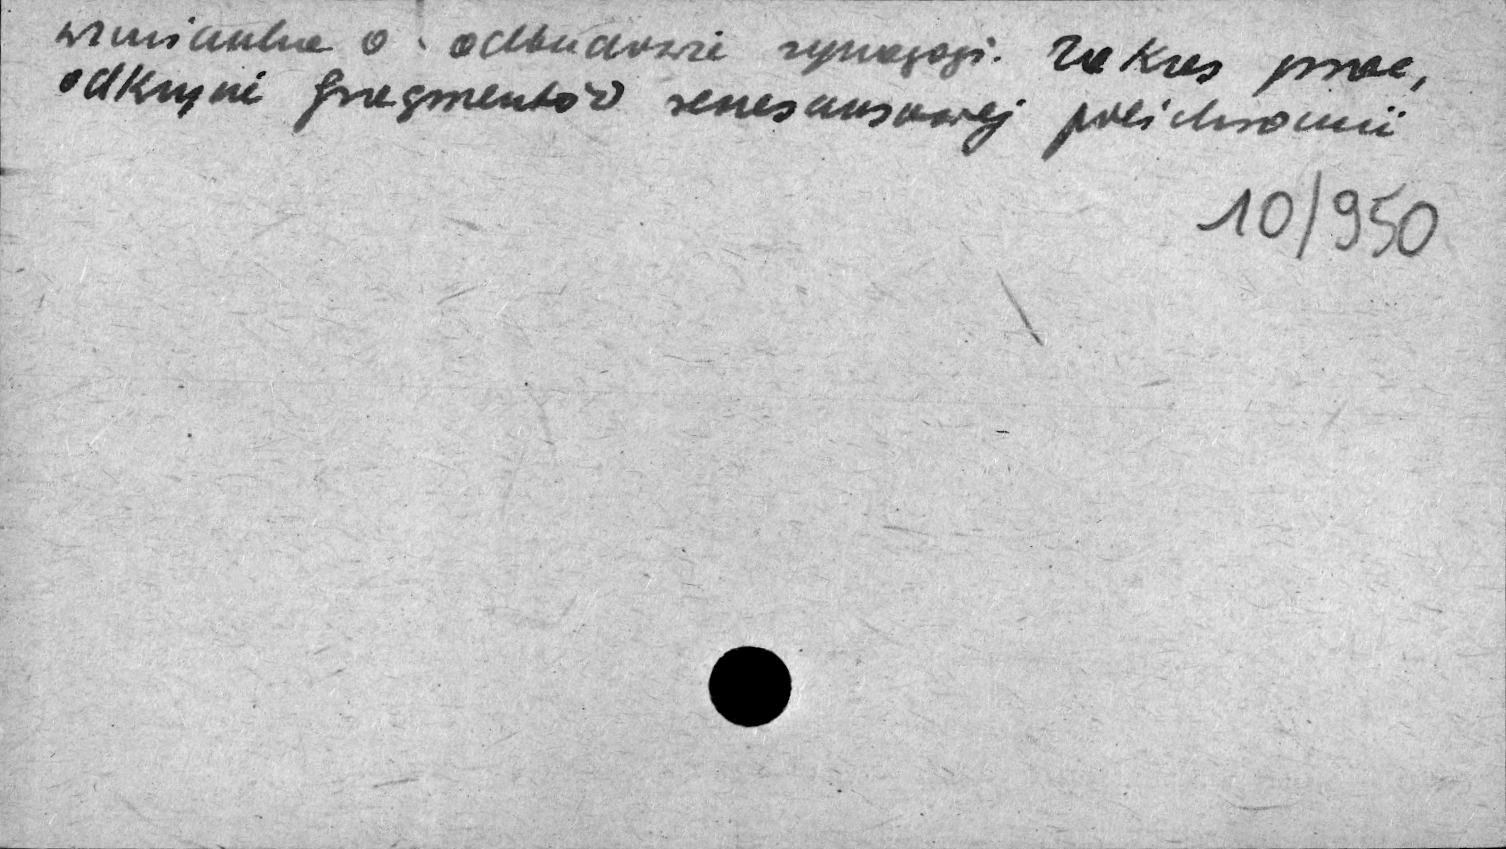 wzmianka o odbudowie synagogi. Zakres prac,
odkrycie fragmentów renesansowej polichromii
10/950